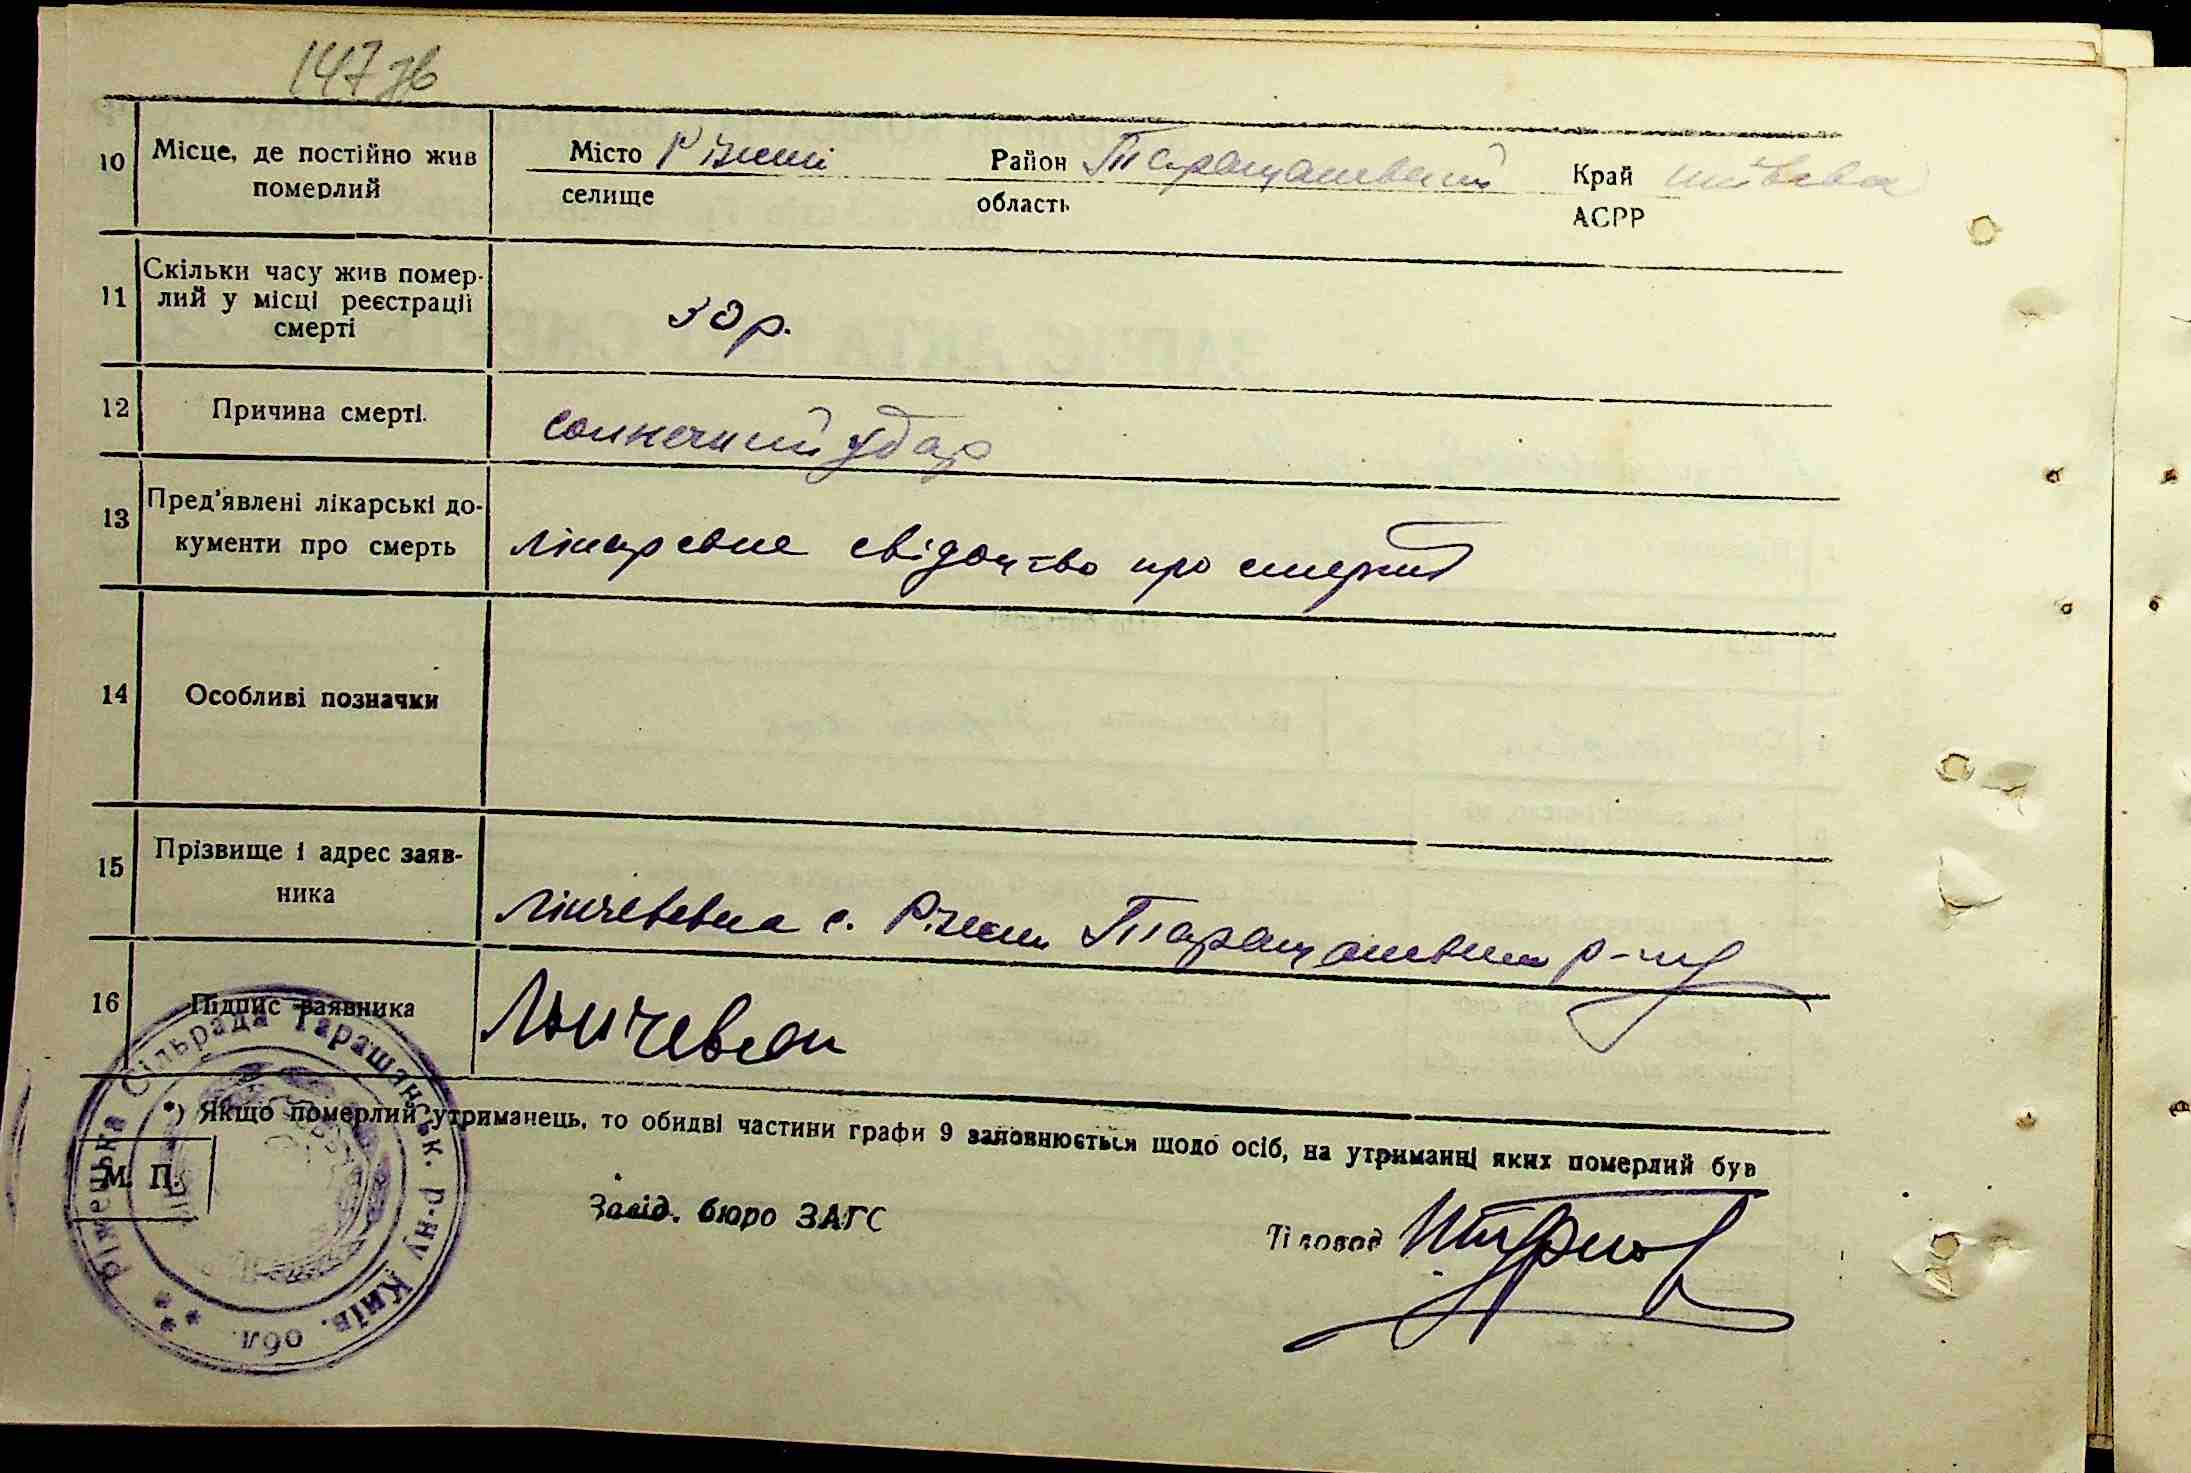 147 зв
10 Місце, де постійно жив померлий
Місто Ріжки Район Таращанський Край Київська
селище область АСРР
11 Скільки часу жив помер-
лий у місці реєстрації
смерті
30 р.
12 Причина смерті.
солнечний удар
13 Пред'явлені лікарські до-
кументи про смерть
лікарське свідоцтво про смерть
14 Особливі позначки
15 Прізвище і адрес заяв-
ника
с. Ріжки Таращанськ р-ну
16 Підпис заявника
*) Якщо померлий утриманець, то обидві частини графи 9 заповнюється щодо осіб, на утриманні яких померлий був
М. П.
Завід. бюро ЗАГС
Діловод
Ріжецька Сільрада Таращанськ. р-ну Київ. обл.